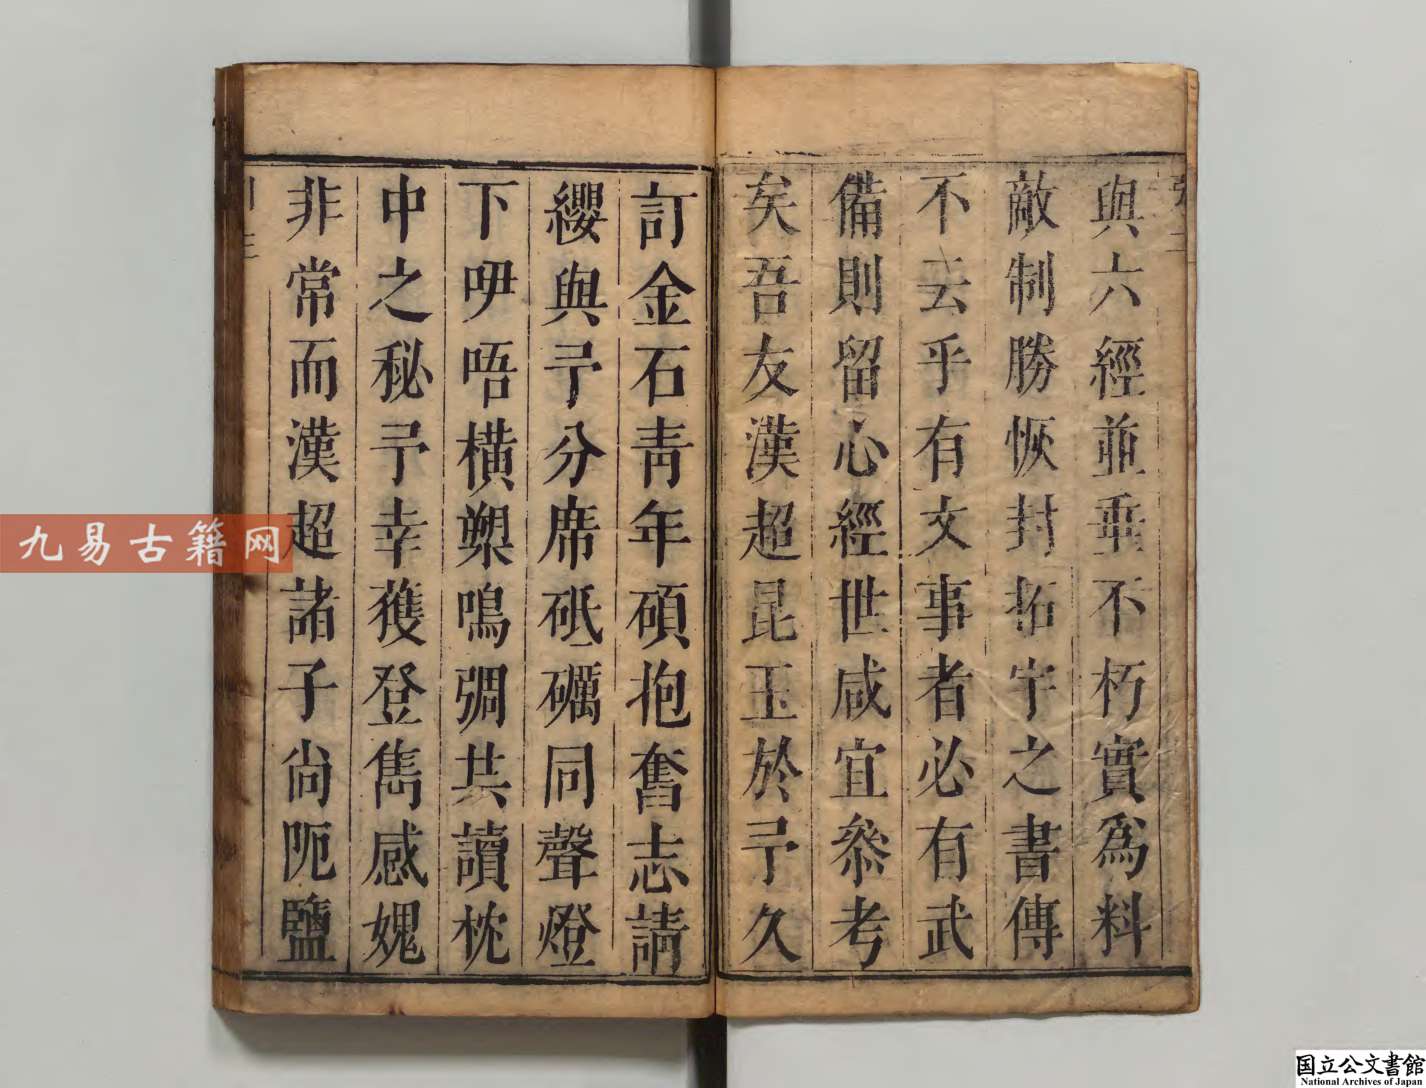 與六經並垂不朽實爲料
敵制勝恢封拓宇之書傳
不云乎有文事者必有武
備則留心經世咸宜叅考
矣吾友漢超昆玉於予久
訂金石青年碩抱奮志請
纓與予分席砥礪同聲燈
下咿唔橫槊鳴弸共讀枕
中之秘予幸獲登雋感媿
非常而漢超諸子尙阨鹽
九易古籍网
国立公文書館
National Archives of Japan